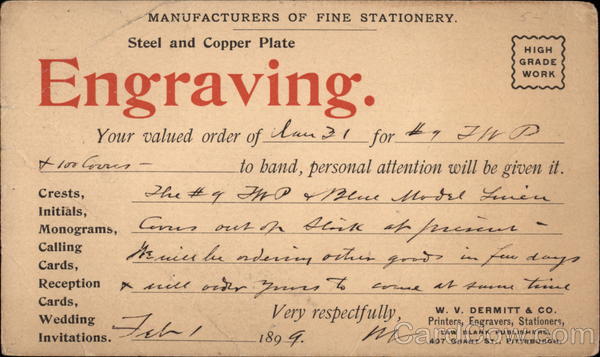 MANUFACTURERS OF FINE STATIONERY.
Steel and Copper Plate
HIGH
GRADE
WORK
Engraving.
Your valued order of Jan 31 for #9 T W P
+ 100 Covers - to hand, personal attention will be given it.
Crests,
Initials,
Monograms,
Calling
Cards,
Reception
Cards,
Wedding
Invitations.
The #9 TWP & Blue Model Linen
Covers out of stock at present -
We will be ordering other goods in few days
& will order yours to come at same time
Very respectfully,
Feb 1 1899.
W. V. DERMITT & CO.
Printers, Engravers, Stationers,
LAW BLANK PUBLISHERS,
407 GRANT ST., PITTSBURGH.
CardCow.com